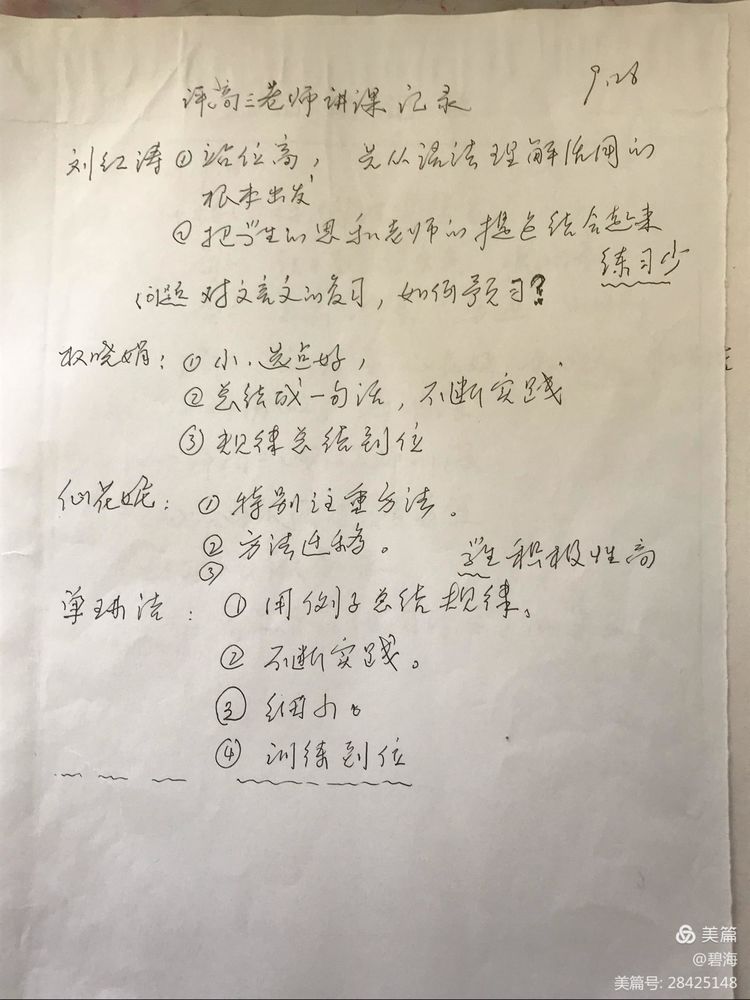 评高三老师讲课记录 9.28
刘红涛 ① 站位高，先从语法理解活用的
根本出发
② 把学生的思和老师的提色结合起来
练习少
问题 对文言文的复习，如何预习？
权晓娟：① 小、选点好，
② 总结成一句话，不断实践
③ 规律总结到位
仙花妮：① 特别注重方法。
② 方法迁移。
③ 学生积极性高
单 洁：① 用例子总结规律。
② 不断实践。
③ 细小
④ 训练到位
美篇
@碧海
美篇号: 28425148